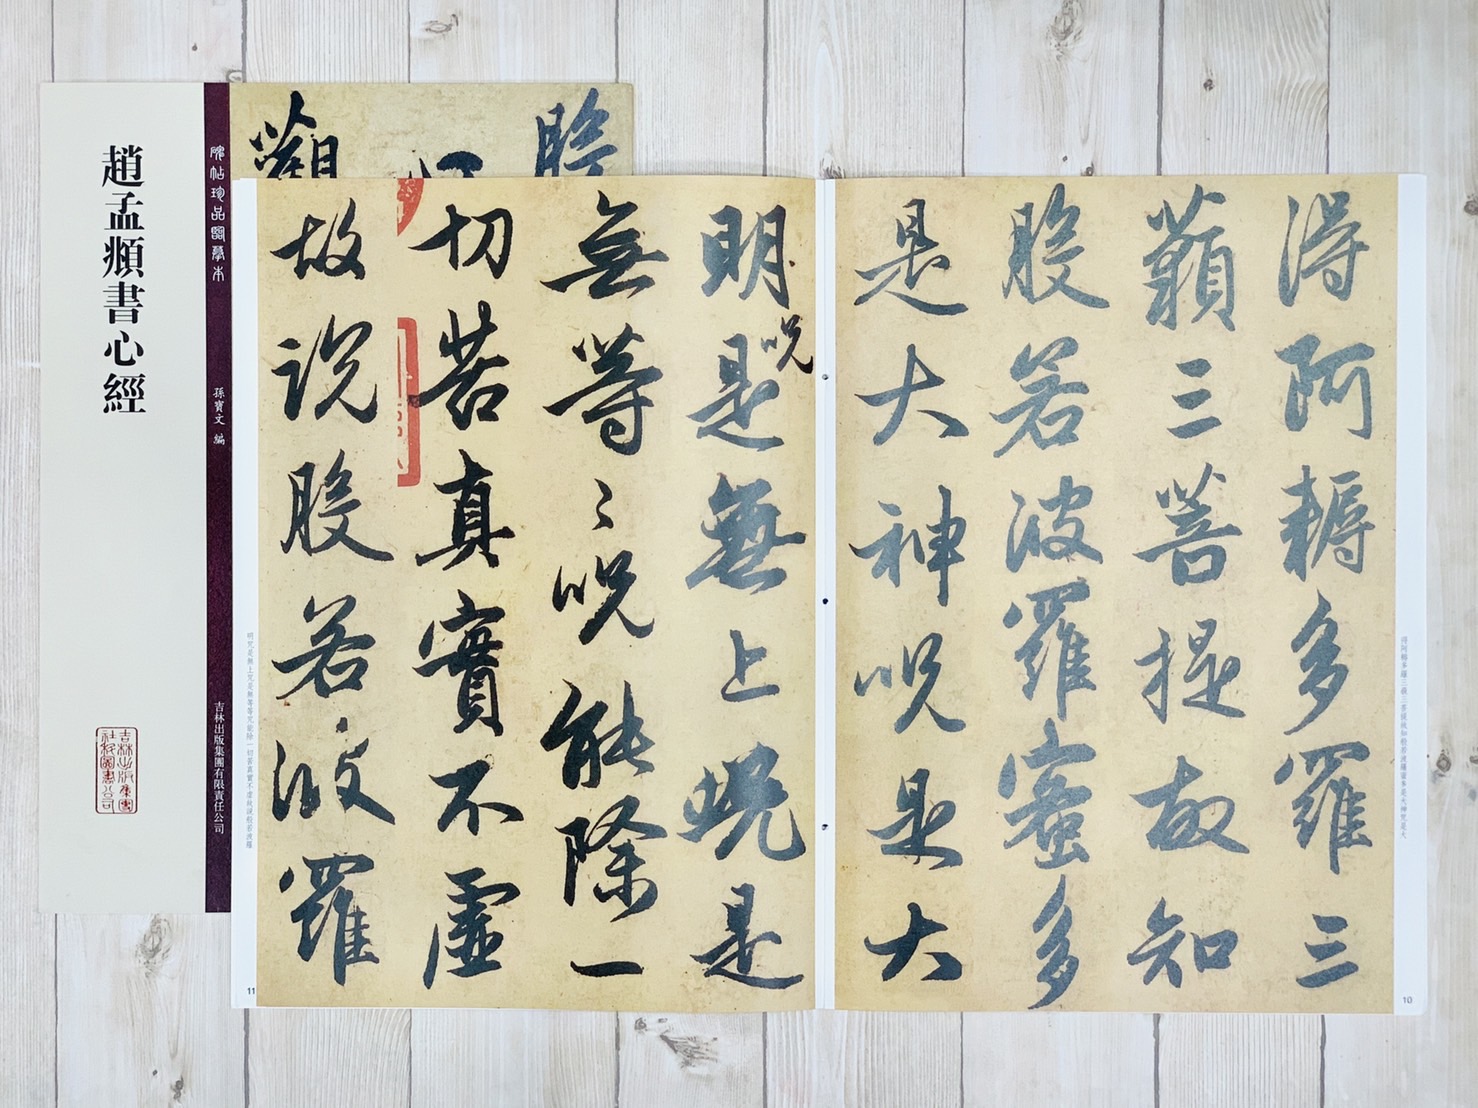 趙孟頫書心經
碑帖珍品臨摹本
孫寶文 編
吉林出版集團有限責任公司
觀
得阿耨多羅三
藐三菩提故知
般若波羅蜜多
是大神呪是大
明呪是無上呪是
無等〻呪能除一
切苦真實不虛
故説般若波羅
得阿耨多羅三藐三菩提故知般若波羅蜜多是大神咒是大
明咒是無上咒是無等等咒能除一切苦真實不虛故說般若波羅
10
11